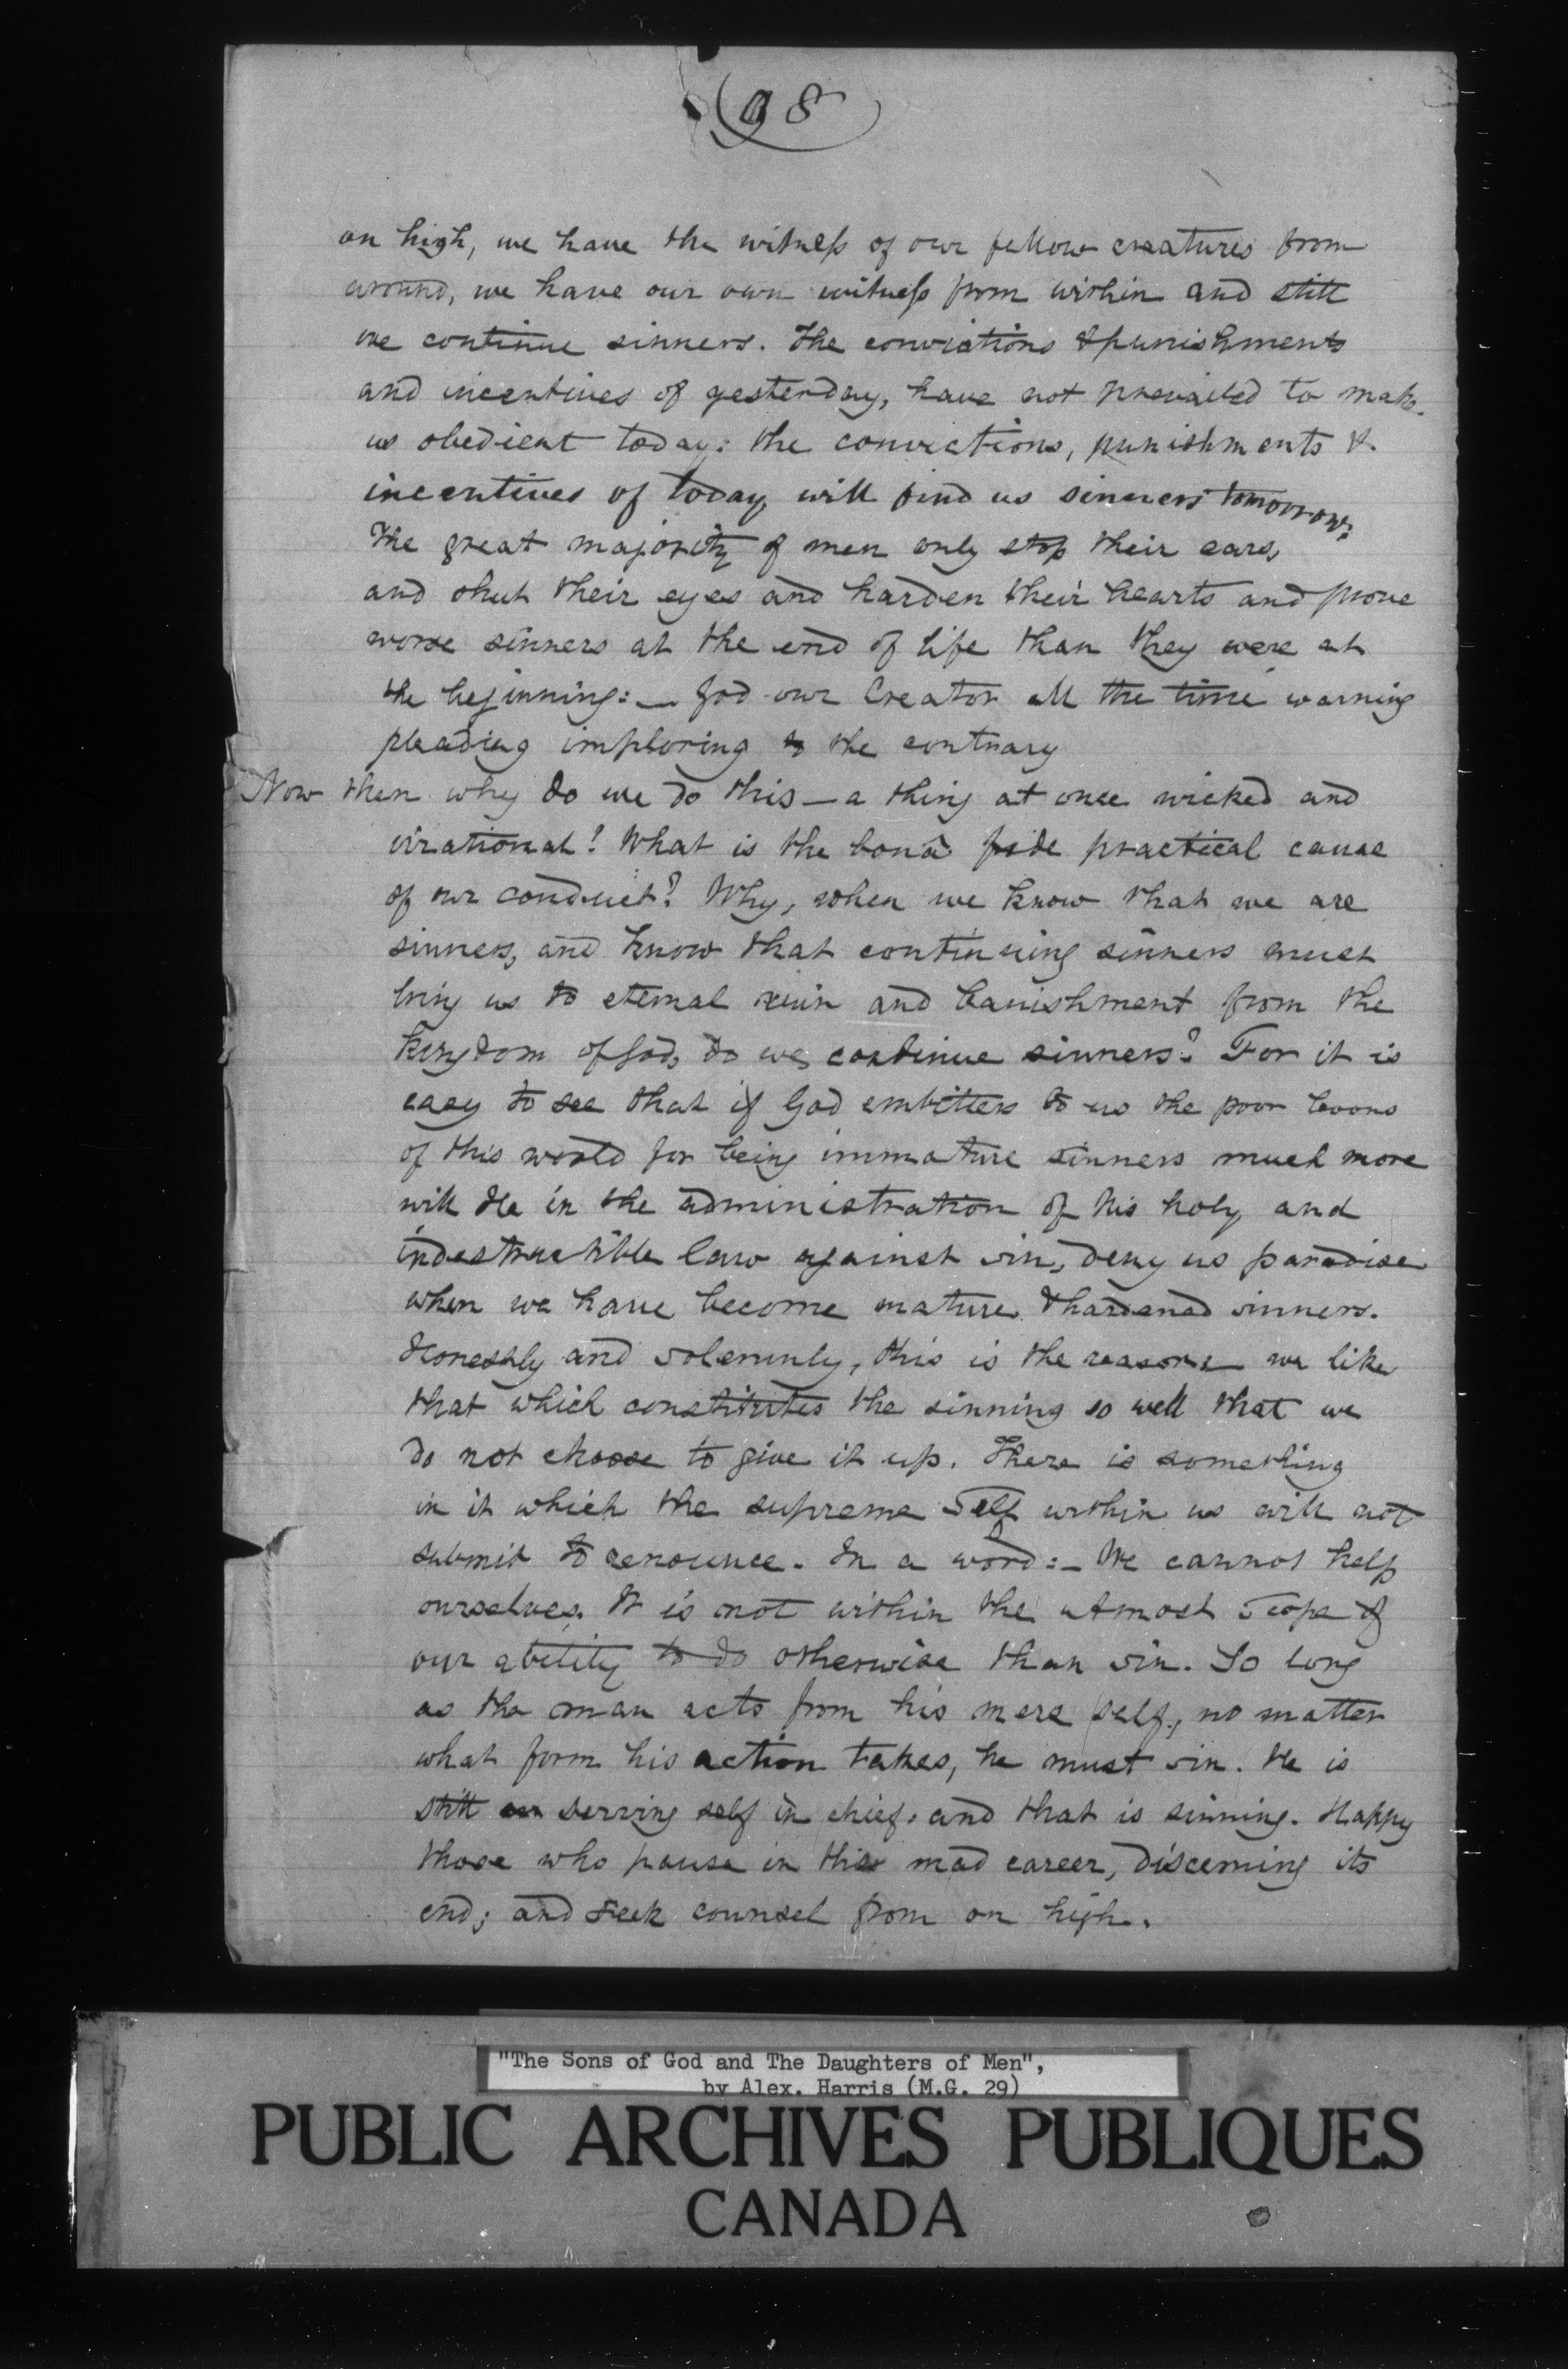 98
on high, we have the witness of our fellow creatures from
around, we have our own witness from within and still
we continue sinners. The convictions & punishments
and incentives of yesterday, have not prevailed to make
us obedient today: the convictions, punishments &
incentives of today, will find us sinners tomorrow.
The great majority of men only stop their ears,
and shut their eyes and harden their hearts and prove
worse sinners at the end of life than they were at
the beginning:— God our Creator all the time warning
pleading imploring to the contrary
Now then why do we do this—a thing at once wicked and
irrational? What is the bonâ fide practical cause
of our conduct? Why, when we know that we are
sinners, and know that continuing sinners must
bring us to eternal ruin and banishment from the
kingdom of God, do we continue sinners? For it is
easy to see that if God embitters to us the poor boons
of this world for being immature sinners much more
will He in the administration of His holy and
indestructible law against sin, deny us paradise
when we have become mature & hardened sinners.
Honestly and solemnly, this is the reason: we like
that which constitutes the sinning so well that we
do not choose to give it up. There is something
in it which the supreme Self within us will not
submit to renounce. In a word:— We cannot help
ourselves. It is not within the utmost scope of
our ability to do otherwise than sin. So long
as the man acts from his mere self, no matter
what form his action takes, he must sin. He is
still serving self in chief: and that is sinning. Happy
those who pause in this mad career, discerning its
end; and seek counsel from on high.
"The Sons of God and The Daughters of Men",
by Alex. Harris (M.G. 29)
PUBLIC ARCHIVES PUBLIQUES
CANADA